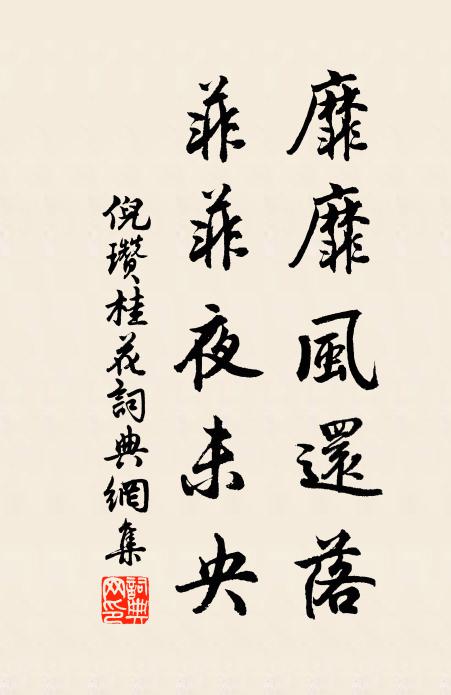 靡靡風還落
菲菲夜未央
倪瓚桂花詞典網集
詞典网印